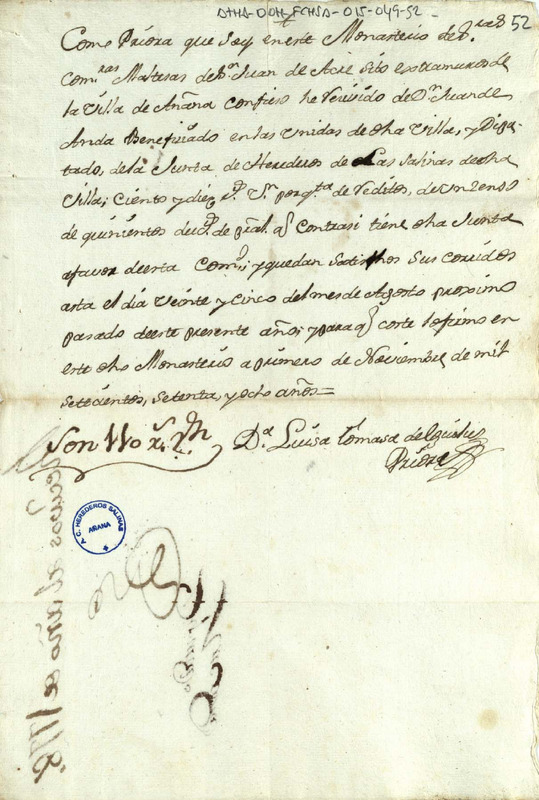 ATHA-DAH-FCHSA-015-049-52
52
Como Priora que soy en este Monasterio de S.ras
Com.ras Maltesas de Sn Juan de Acre sito extramuros de
la Villa de Añana confieso he recivido de Dn Juan de
Anda Beneficiado en las Unidas de dha Villa, y Dipu-
tado, de la Junta de Herederos de Las Salinas de dha
Villa; Ciento y diez rs. Vn por qta de reditos, de un zenso
de quinientos ducs de pral. q contra si tiene dha Junta
a favor de esta Comd; y quedan satisfhos sus corridos
asta el dia Veinte y cinco del mes de Agosto proximo
pasado de este presente año; y para q conste lo firmo en
este dho Monasterio a primero de Noviembre de mil
setecientos, setenta, y ocho años=
Son 110 rs. Vn
Da. Luisa Tomasa del
Priora
A. C. HEREDEROS SALINAS
AÑANA
Recivos del año de 1778